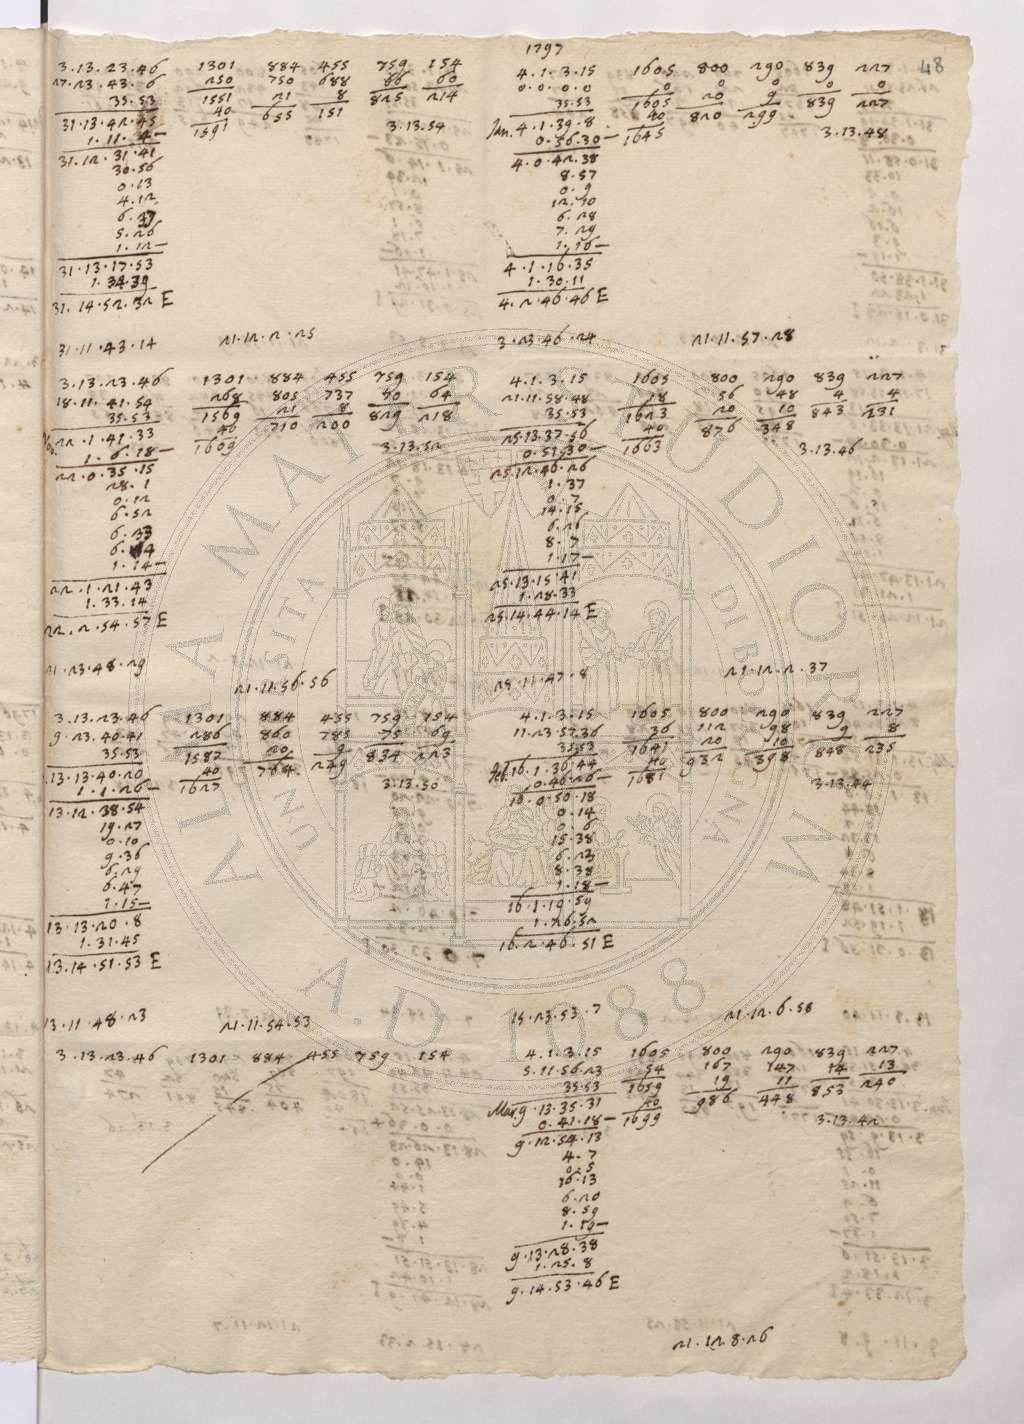 48
3.13.23.46 1301 884 455 759 154
27.23.43.6 250 750 688 66 60
35.53 1551 21 8 825 214
31.13.42.45 40 655 151
1.11.4 1591 3.13.54
31.12.31.41
30.56
0.13
4.12
6.37
5.26
1.12
31.13.17.53
1.34.39
31.14.52.32 E
31.11.43.14 21.12.2.25
3.13.23.46 1301 884 455 759 154
18.11.41.54 268 805 737 70 64
35.53 1569 21 8 829 218
22.1.41.33 40 710 200
1.6.18 1609 3.13.52
22.0.35.15
28.1
0.12
6.52
6.33
1.14
22.1.21.43
1.33.14
22.2.54.57 E
21.23.48.29 21.11.56.56
3.13.23.46 1301 884 455 759 154
9.23.40.41 286 860 785 75 69
35.53 1587 20 9 834 223
13.13.40.20 40 764 249
1.1.26 1627 3.13.50
13.12.38.54
19.27
0.10
9.36
6.29
6.47
1.15
13.13.20.8
1.31.45
13.14.51.53 E
13.11.48.23 21.11.54.53
3.13.23.46 1301 884 455 759 154
1797
4.1.3.15 1605 800 290 839 227
0.0.0.0 0 0 0 0 0
35.53 1605 20 9 839 227
Jan. 4.1.39.8 40 820 299
0.36.30 1645 3.13.48
4.0.42.38
8.57
0.9
12.10
6.28
7.29
1.16
4.1.16.35
1.30.11
4.2.46.46 E
3.23.46.24 21.11.57.28
4.1.3.15 1605 800 290 839 227
21.11.58.48 18 56 48 4 4
35.53 1623 20 10 843 231
25.13.37.56 40 876 348
0.51.30 1663 3.13.46
25.12.46.26
1.37
0.7
14.15
6.26
8.7
1.17
25.13.15.41
1.28.33
25.14.44.14 E
25.11.47.8 21.12.2.37
4.1.3.15 1605 800 290 839 227
11.23.57.36 36 112 98 9 8
35.53 1641 20 10 848 235
Feb. 16.1.36.44 40 932 398
0.46.26 1681 3.13.44
16.0.50.18
0.14
0.6
15.38
6.23
8.38
1.18
16.1.19.59
1.26.52
16.2.46.51 E
15.23.53.7 21.12.6.58
4.1.3.15 1605 800 290 839 227
5.11.56.23 54 167 147 14 13
35.53 1659 19 11 853 240
Mar. 9.13.35.31 40 986 448
0.41.18 1699 3.13.42
9.12.54.13
4.7
0.5
16.13
6.20
8.59
1.19
9.13.28.38
1.25.8
9.14.53.46 E
21.12.8.26
ALMA MATER STUDIORUM
UNIVERSITA DI BOLOGNA
A.D. 1088